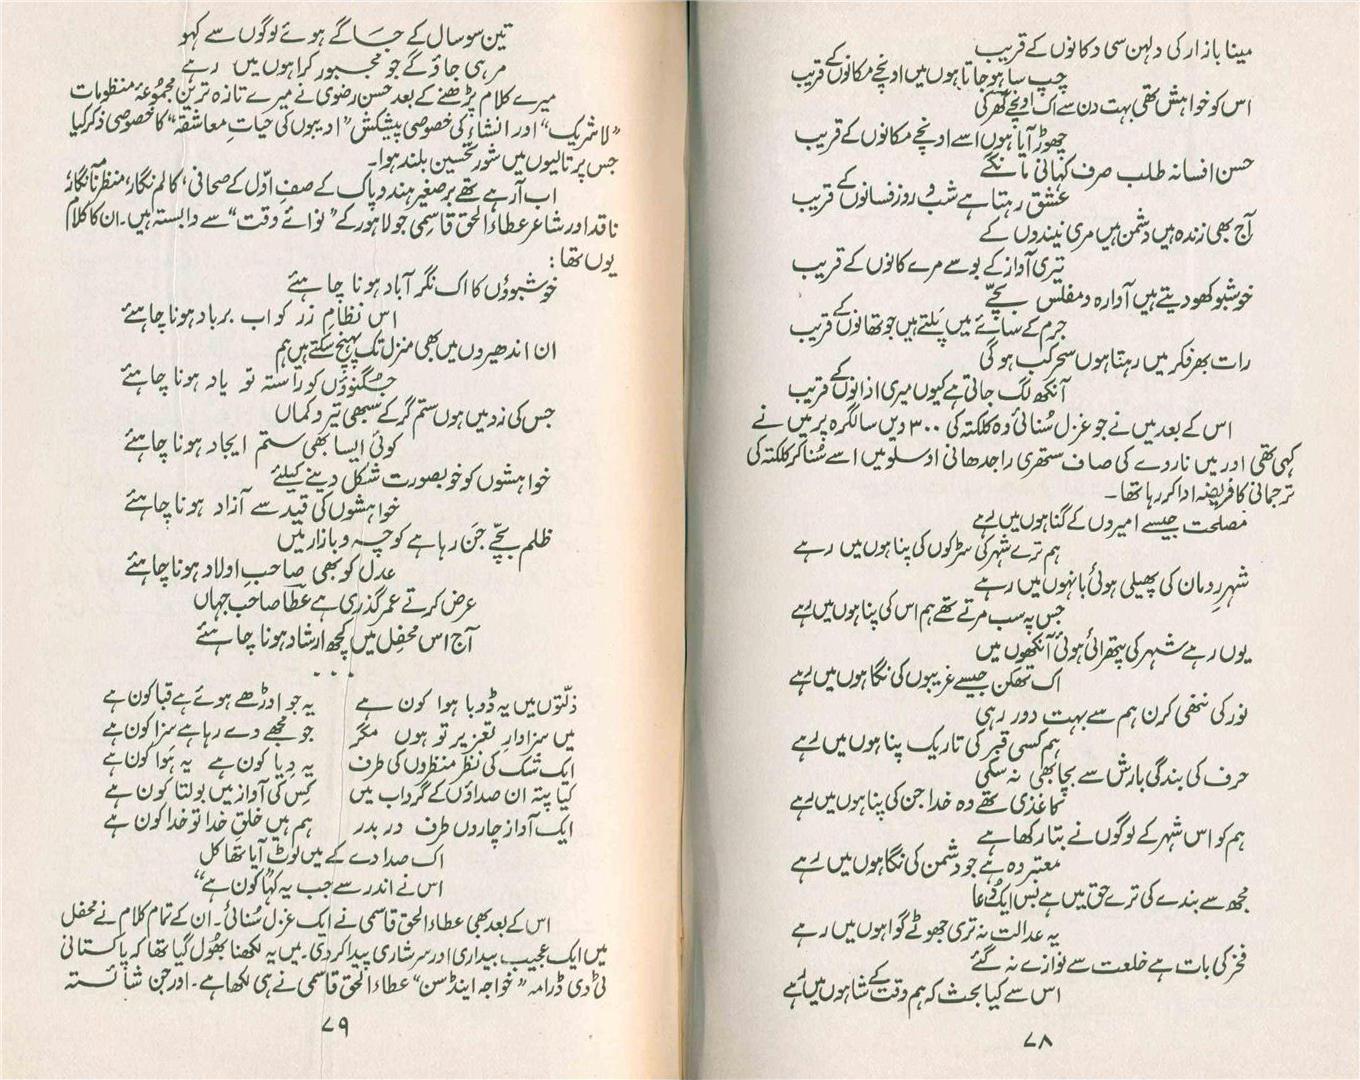 مینا بازار کی دلہن سی دکانوں کے قریب
چپ سا ہو جاتا ہوں میں اونچے مکانوں کے قریب
اس کو خواہش تھی بہت دن سے اک اونچے گھر کی
چھوڑ آیا ہوں اسے اونچے مکانوں کے قریب
حسن افسانہ طلب صرف کہانی مانگے
عشق رہتا ہے شب و روز فسانوں کے قریب
آج بھی زندہ ہیں دشمن ہیں مری نیندوں کے
تیری آواز کے بوسے مرے کانوں کے قریب
خوشبو کھو دیتے ہیں آوارہ و مفلس بچّے
جرم کے سائے میں پَلتے ہیں جو تھانوں کے قریب
رات بھر فکر میں رہتا ہوں سحر کب ہو گی
آنکھ لگ جاتی ہے کیوں میری اذانوں کے قریب
اس کے بعد میں نے جو غزل سُنائی وہ کلکتہ کی ۳۰۰ ویں سالگرہ پر میں نے
کہی تھی اور میں ناروے کی صاف ستھری راجدھانی اوسلو میں اسے سُنا کر کلکتہ کی
ترجمانی کا فریضہ ادا کر رہا تھا۔
مصلحت جیسے امیروں کے گناہوں میں رہے
ہم ترے شہر کی سڑکوں کی پناہوں میں رہے
شہرِ رومان کی پھیلی ہوئی بانہوں میں رہے
جس پہ سب مرتے تھے ہم اس کی پناہوں میں رہے
یوں رہے شہر کی پتھرائی ہوئی آنکھوں میں
اک تھکن جیسے غریبوں کی نگاہوں میں رہے
نور کی ننھی کرن ہم سے بہت دور رہی
ہم کسی قبر کی تاریک پناہوں میں رہے
حرف کی بندگی بارش سے بچا بھی نہ سکی
کاغذی تھے وہ خدا جن کی پناہوں میں رہے
ہم کو اس شہر کے لوگوں نے بتا رکھا ہے
معتبر وہ ہے جو دشمن کی نگاہوں میں رہے
مجھ سے بندے کی ترے حق میں ہے بس ایک دُعا
یہ عدالت نہ تری جھوٹے گواہوں میں رہے
فخر کی بات ہے خلعت سے نوازے نہ گئے
اس سے کیا بحث کہ ہم وقت کے شاہوں میں رہے
۷۸
تین سو سال کے جاگے ہوئے لوگوں سے کہو
مر ہی جاؤ گے جو مجبور کراہوں میں رہے
میرے کلام پڑھنے کے بعد حسن رضوی نے میرے تازہ ترین مجموعۂ منظومات
"لاشریک" اور انشاء کی خصوصی پیشکش "ادیبوں کی حیاتِ معاشقہ" کا خصوصی ذکر کیا
جس پر تالیوں میں شور تحسین بلند ہوا۔
اب آرہے تھے برصغیر ہند و پاک کے صفِ اوّل کے صحافی، کالم نگار، منظرنامہ نگار،
ناقد اور شاعر عطاءالحق قاسمی جو لاہور کے "نوائے وقت" سے وابستہ ہیں۔ ان کا کلام
یوں تھا:
خوشبوؤں کا اک نگر آباد ہونا چاہئے
اس نظامِ زر کو اب برباد ہونا چاہئے
ان اندھیروں میں بھی منزل تک پہنچ سکتے ہیں ہم
جگنوؤں کو راستہ تو یاد ہونا چاہئے
جس کی زد میں ہوں ستم گر کے سبھی تیر و کماں
کوئی ایسا بھی ستم ایجاد ہونا چاہئے
خواہشوں کو خوبصورت شکل دینے کیلئے
خواہشوں کی قید سے آزاد ہونا چاہئے
ظلم بچّے جَن رہا ہے کوچہ و بازار میں
عدل کو بھی صاحبِ اولاد ہونا چاہئے
عرض کرتے عمر گذری ہے عطاؔ صاحب جہاں
آج اس محفل میں کچھ ارشاد ہونا چاہئے
۔ ۔ ۔
ذلّتوں میں یہ ڈوبا ہوا کون ہے یہ جو اوڑھے ہوئے ہے قبا کون ہے
میں سزاوارِ تعزیر تو ہوں مگر جو مجھے دے رہا ہے سزا کون ہے
ایک شک کی نظر منظروں کی طرف یہ دِیا کون ہے یہ ہَوا کون ہے
کیا پتہ ان صداؤں کے گرداب میں کِس کی آواز میں بولتا کون ہے
ایک آواز چاروں طرف در بدر ہم ہیں خلقِ خدا تو خدا کون ہے
اک صدا دے کے میں لوٹ آیا تھا کل
اس نے اندر سے جب یہ کہا "کون ہے"
اس کے بعد بھی عطاءالحق قاسمی نے ایک غزل سُنائی۔ ان کے تمام کلام نے محفل
میں ایک عجیب بیداری اور سرشاری پیدا کر دی۔ میں یہ لکھنا بھُول گیا تھا کہ پاکستانی
ٹی وی ڈرامہ "خواجہ اینڈ سن" عطاءالحق قاسمی نے ہی لکھا ہے۔ اور جن شائستہ
۷۹